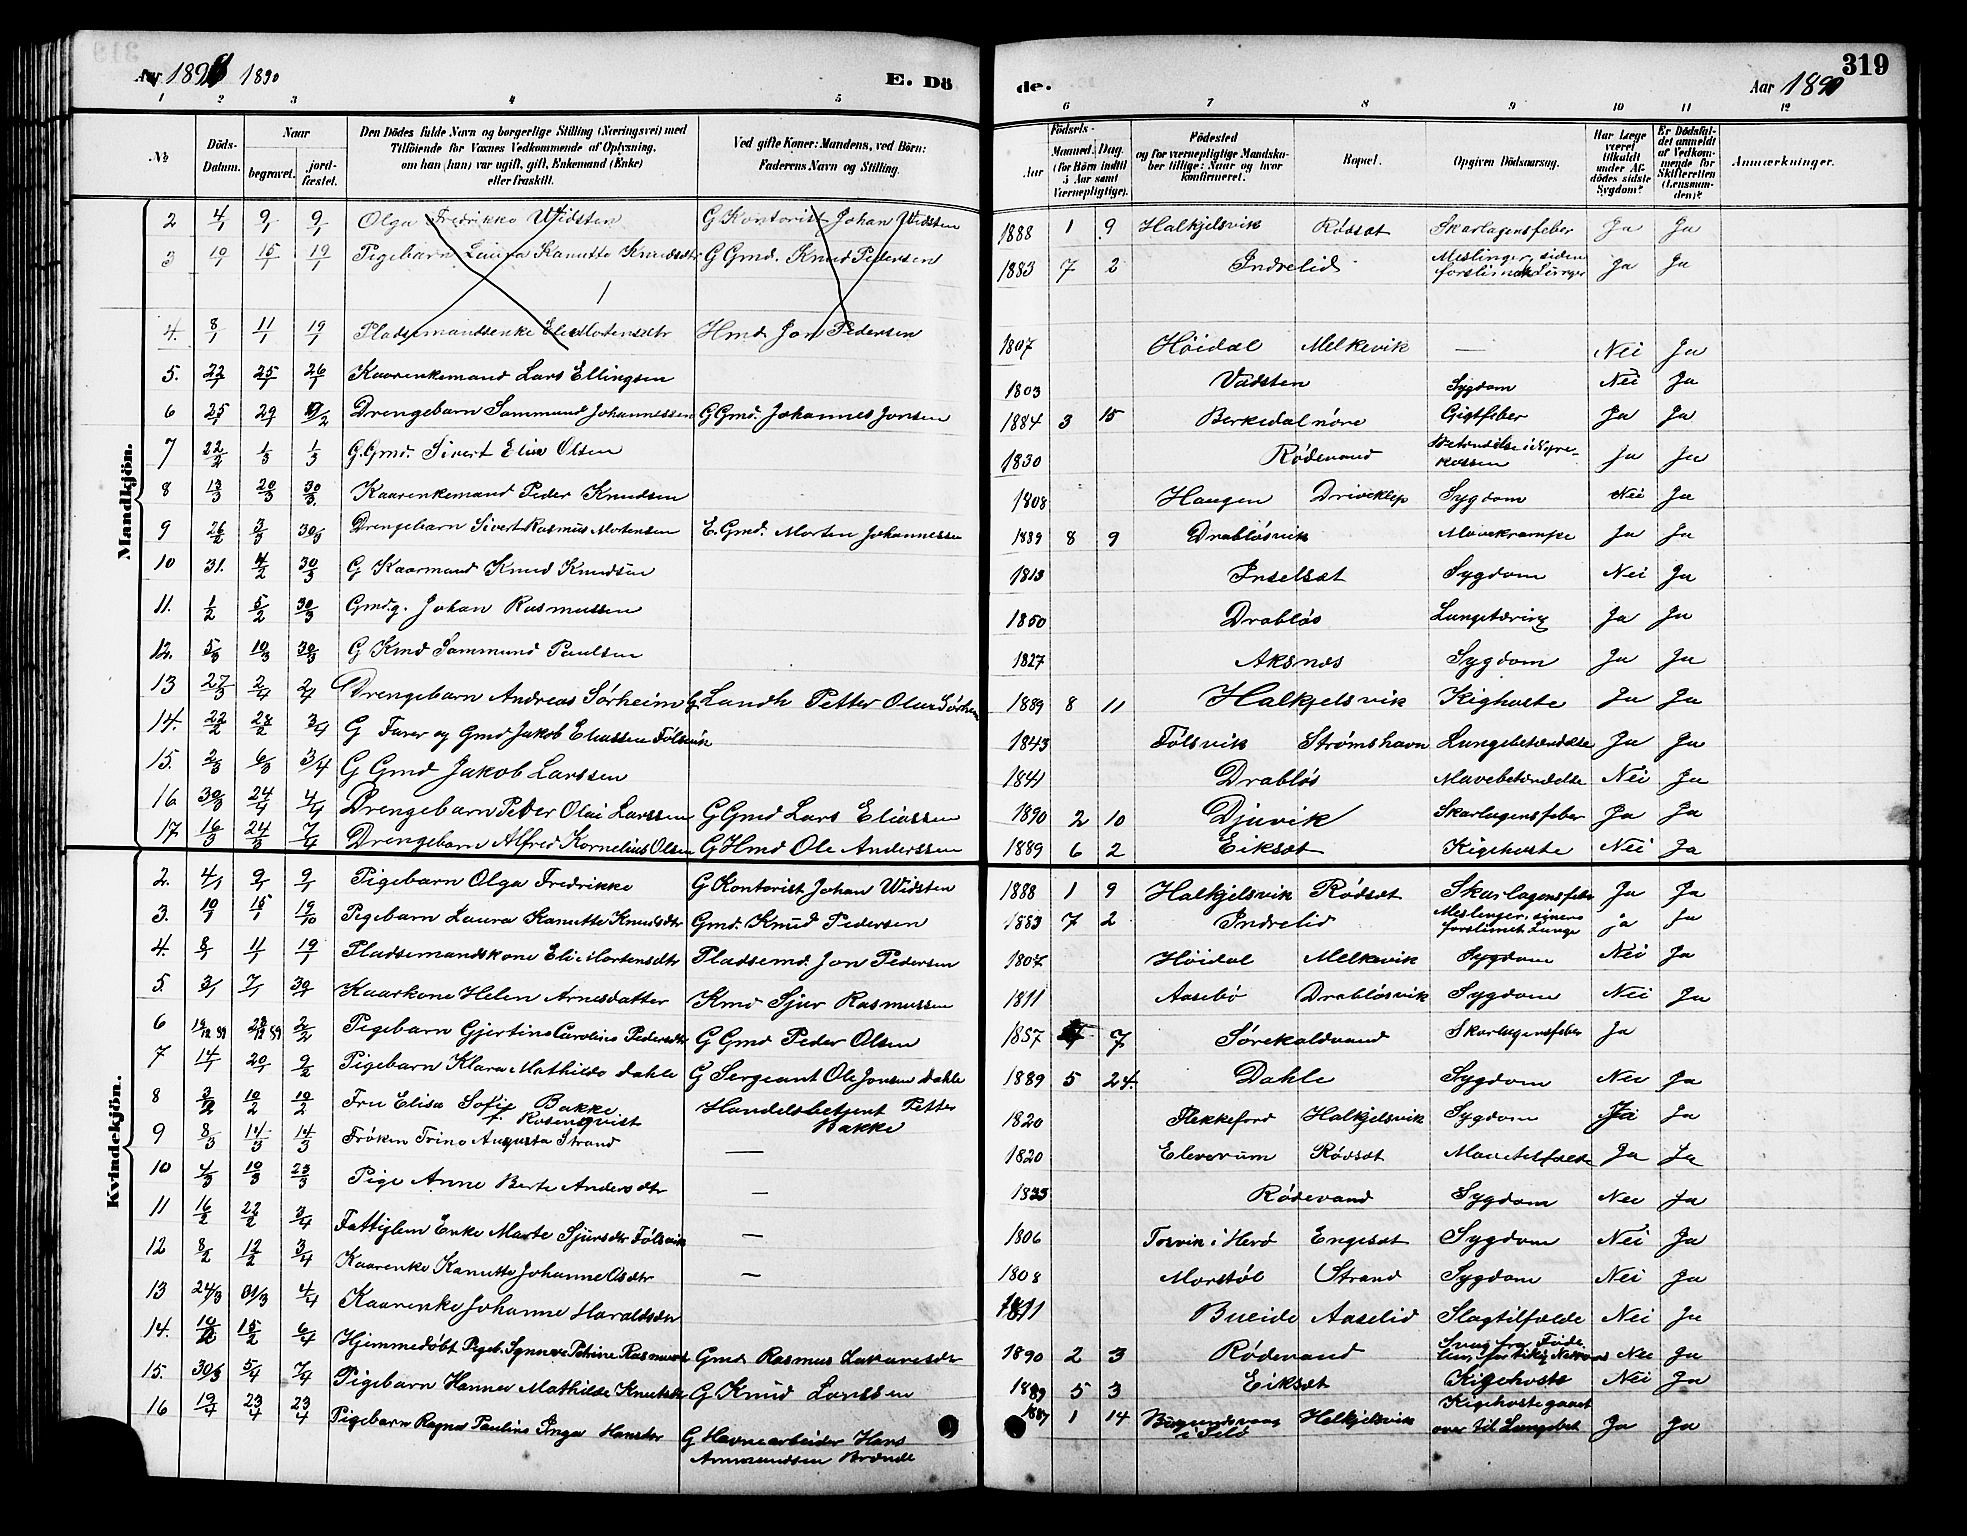 Aar 1890 1890 E. Dö de. Aar 1890 319
1 2 3 4 5 6 7 8 9 10 11 12
No
Döds-Datum.
Naar
begravet.
jord-fæstet.
Den Dödes fulde Navn og borgerlige Stilling (Næringsvei) med
Tilföiende for Voxnes Vedkommende af Oplysning,
om han (hun) var ugift, gift, Enkemand (Enke)
eller fraskilt.
Ved gifte Koner: Mandens, ved Börn:
Faderens Navn og Stilling.
Födsels-
Aar
Maaned. Dag.
(for Börn indtil
5 Aar samt
Værnepligtige).
Födested
og for værnepligtige Mandska-
ber tillige: Naar og hvor
konfirmeret.
Bopæl.
Opgiven Dödsaarsag.
Har Læge
været
tilkaldt
under Af-
dödes sidste
Sygdom?
Er Dödsfal-
det anmeldt
af Vedkom-
mende for
Skifteretten
(Lensman-
den)?
Anmærkninger.
Mandkjön.
2 4/1 9/1 9/1 Olga Fredrikke Widsten G Kontorist Johan Widsten 1888 1 9 Halkjelsvik Rödsæt Skarlagensfeber Ja Ja
3 10/1 15/1 19/1 Pigebarn Laura Kanutte Knudsdtr G Gmd. Knud Pedersen 1883 7 2 Indrelid Meslinger, siden forslimet Lunger Ja Ja
4. 8/1 11/1 19/1 Pladsemandsenke Eli Mortensdtr Hmd Jon Pedersen 1807 Höidal Melkevik — Nei Ja
5. 22/1 25/1 26/1 Kaarenkemand Lars Ellingsen 1803 Vadsten Sygdom Nei Ja
6 25/1 29/1 9/2 Drengebarn Sammund Johannessen G Gmd. Johannes Jonsen 1884 3 15 Berkedal nore Gigtfeber Ja Ja
7 22/2 1/3 1/3 G. Gmd. Sivert Elias Olsen 1830 Rödevand Ja Ja
8 13/3 20/3 30/3. Kaarenkemand Peder Knudsen 1808 Haugen Driveklep Sygdom Nei Ja
9 26/2 3/3 30/3 Drengebarn Sivert Rasmus Mortensen E. Gmd. Morten Johannessen 1889 8 9 Drablösvik Mavekrampe Ja Ja
10 31. 4/2 30/3 G Kaarmand Knud Knudsen 1813 Inselsæt Sygdom Nei Ja
11. 1/2 5/2 30/3 Gmd. g. Johan Rasmussen 1850 Drablös Lungetæring Ja Ja
12. 5/3 10/3 30/3 G Kmd Sammund Paulsen 1827 Aksnæs Sygdom Ja Ja
13 27/3 2/4 2/4 Drengebarn Andreas Sörheim G. Landh Petter Olaus Sörheim 1889 8 11 Halkjelsvik Kighoste Ja Ja
14. 22/2 28/2 3/4 G Furer og Gmd Jakob Eliassen Fölsvik 1843 Fölsvik Strömshavn Lungebetændelse Ja Ja
15. 2/3 6/3 3/4 G Gmd Jakob Larssen 1841 Drablös Mavebetændelse Nei Ja
16 30/3 24/4 4/4 Drengebarn Peder Olai Larssen G Gmd Lars Eliassen 1890 2 10 Djuvik Skarlagensfeber Ja Ja
17. 16/3 24/3 7/4 Drengebarn Alfred Kornelius Olsen G Hmd Ole Anderssen 1889 6 2 Eiksæt Kigehoste Nei Ja
Kvindekjön.
2. 4/1 9/1 9/1 Pigebarn Olga Fredrikke G Kontorist Johan Widsten 1888 1 9 Halkjelsvik Rödsæt Skarlagensfeber Ja Ja
3. 10/1 15/1 19/10 Pigebarn Laura Kanutte Knudsdtr Gmd. Knud Pedersen 1883 7 2 Indrelid Meslinger, forslimet Lunge ja Ja
4. 8/1 11/1 19/1 Pladsemandskone Eli Mortensdtr Pladsemd. Jon Pedersen 1807 Höidal Melkevik Sygdom Nei Ja
5. 3/1 7/1 30/1 Kaarkone Helen Arnesdatter Kmd Sjur Rasmussen 1811 Aasebö Drablösvik Sygdom Nei Ja
6 19/12 89 28/12 89 2/2 Pigebarn Gjertine Caroline Pedersdtr G Gmd Peder Olsen 1857 7 Sörekaldvand Skarlagensfeber Ja
7 14/1 20/1 9/2 Pigebarn Klara Mathilde Dahle G Sergeant Ole Jonsen Dahle 1889 5 24. Dahle Sygdom Nei Ja
8 3/2 10/2 10/2 Fru Elisa Sofij Bakke f. Rosenqvist Handelsbetjent Petter Bakke 1820 Flekkefjord Halkjelsvik Sygdom Ja Ja
9 8/3 14/3 14/3 Fröken Trine Augusta Strand — 1820 Eleverum Rödsæt Ja Ja
10 4/3 10/3 23/3 Pige Anne Berte Andersdtr — 1833 Rödevand Sygdom Nei Ja
11 16/2 22/2 3/4 Fattiglem Enke Marte Sjursdtr Fölsvik — 1806 Torvik i Herö Engesæt Sygdom Nei Ja
12 8/2 12/2 3/4 Kaarenke Kanutte Johanne Osdtr — 1808 Morstöl Strand Sygdom Nei Ja
13 24/3 31/3 4/4 Kaarenke Johanne Haraldsdtr 1811 Bueide Aaselid Slagtilfælde Nei Ja
14. 10/2 15/2 6/4 Hjemmedöbt Pigeb. Synneve Petrine Rasmusd Gmd Rasmus Zakariasdtr 1890 2 3 Rödevand Svag fra Födselen, Nei Ja
15. 30/3 5/4 7/4 Pigebarn Hanna Mathilde Knutsdtr G Knud Larssen 1889 5 3 Eiksæt Kigehoste Nei Ja
16 19/4 23/4 23/4 Pigebarn Ragna Pauline Inga Hansdtr G Havnearbeider Hans Ammundsen Brænde 1887 1 14 Halkjelsvik Kigehoste gaaet over til Lungebet. Ja Ja